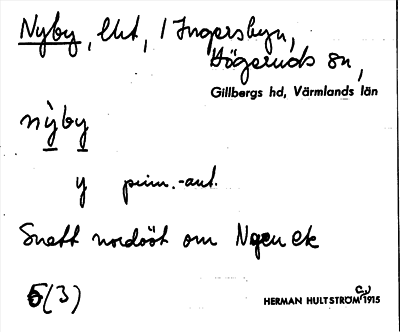 Nyby, lht, 1 Ingersbyn,
Högeruds sn,
Gillbergs hd, Värmlands län
nỳby
y prim.-ant.
Snett nordöst om Ngen ek
6(3)
HERMAN HULTSTRÖM 1915